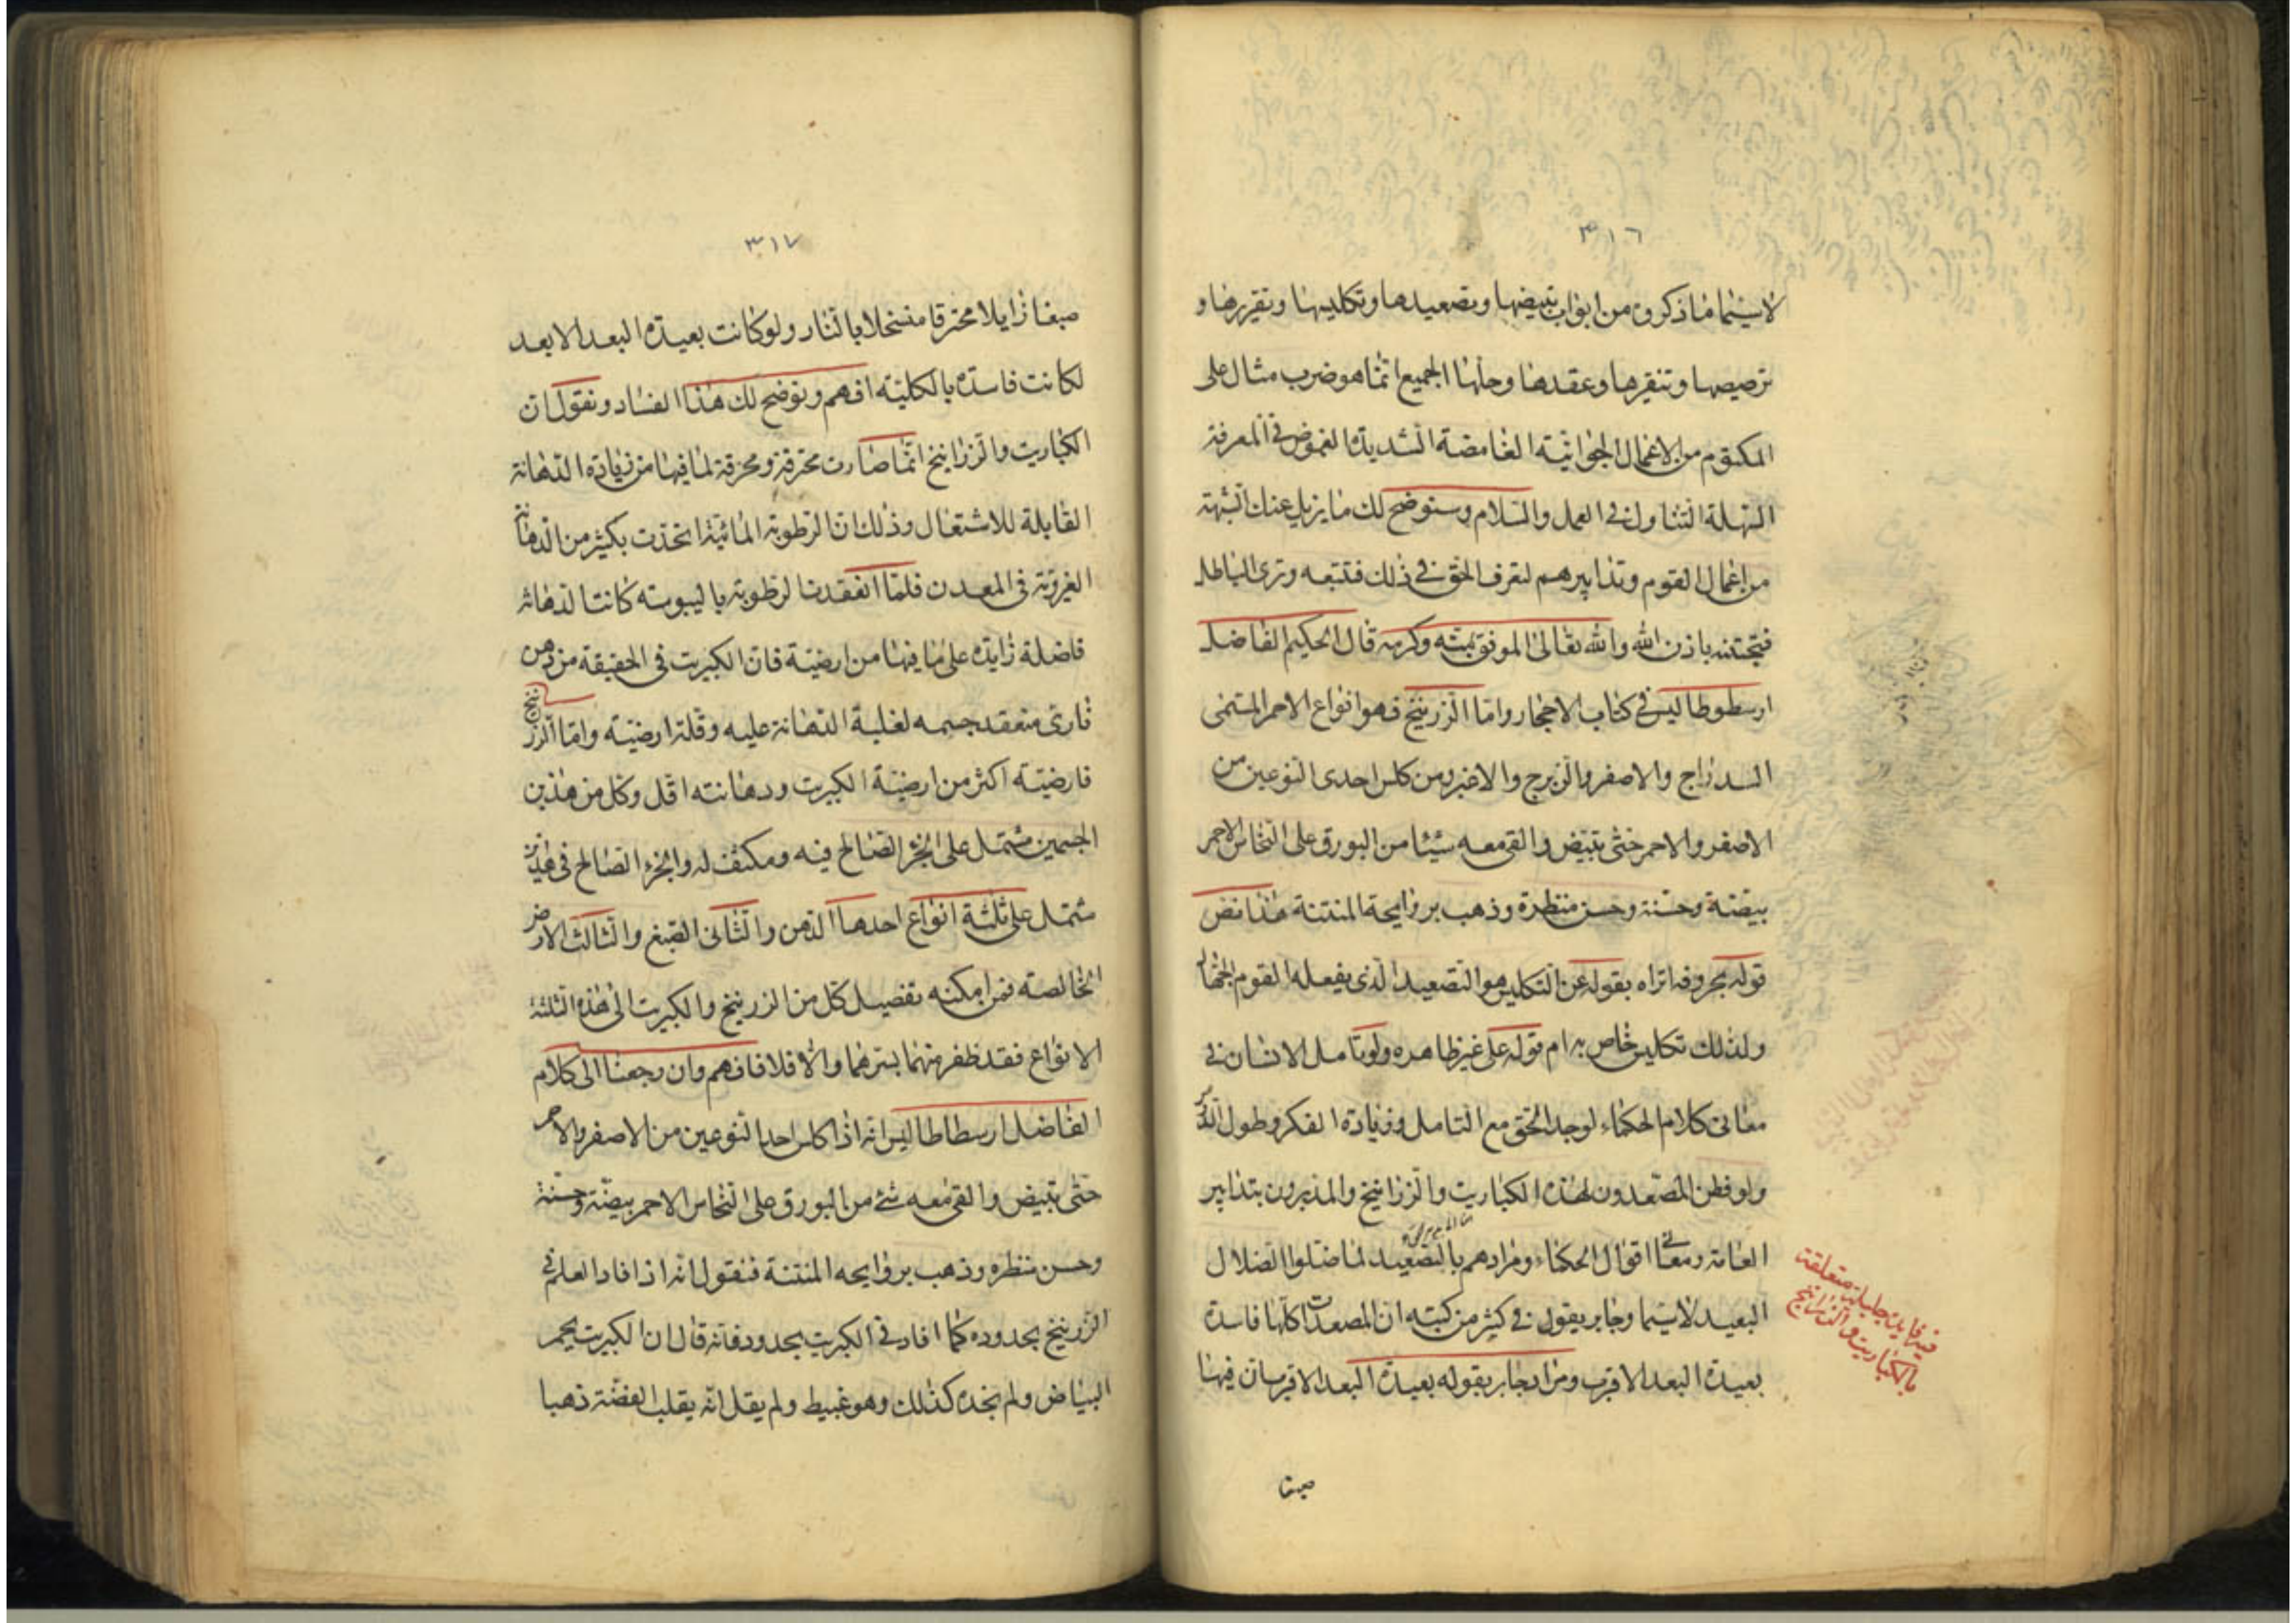 ٣١٦
لاسيما ما ذكروه من ابواب تبييضها وتصعيدها وتكليسها وتقريرها و
ترصيصها وتنقيرها وعقدها وحلها الجميع انما هو ضرب مثال على
المكتوم من الاعمال الجوانية الغامضة الشديدة الغموض في المعرفة
السهلة التناول في العمل والسلام وسنوضح لك ما يزيل عنك الشبهة
من اعمال القوم وتدابيرهم لتعرف الحق في ذلك فتتبعه وترى الباطل
فتجتنبه باذن الله والله تعالى الموفق بمنه وكرمه قال الحكيم الفاضل
ارسطوطاليس في كتاب الاحجار واما الزرنيخ فهو انواع الاحمر المسمى
السدراج والاصفر والزبرج والاغبر ومن كلس احدى النوعين من
الاصفر والاحمر حتى تبيض والقى معه شيئا من البورق على النحاس الاحمر
بيضه وحسنه وحسن منظره وذهب بروايحه المنتنة هذا نص
قوله بحروفه اتراه بقوله عن التكليس هو التصعيد الذى يفعله القوم الجهال
ولذلك تكليس خاص به ام قوله على غير ظاهره ولو تامل الانسان في
معانى كلام الحكماء لوجد الحق مع التامل وزيادة الفكر وطول
ولو فطن المصعدون لهذه الكباريت والزرانيخ والمدبرون بتدابير
العامة ومعا في اقوال الحكماء ومرادهم بالتصعيد لما ضلوا الضلال
البعيد لاسيما وجابر يقول في كثير من كتبه ان المصعدات كلها فاسدة
بعيدة البعد الاقرب ومراد جابر بقوله بعيدة البعد الاقرب ان فيها
فيه فايدة جليلة متعلقة
بالكباريت والزرانيخ
صبغا
٣١٧
صبغا زايلا محترقا منسحلا بالنار ولو كانت بعيدة البعد الابعد
لكانت فاسدة بالكلية افهم ونوضح لك هذا الفساد ونقول ان
الكباريت والزرانيخ انما صارت محترقة ومحرقة لما فيها من زيادة الدهانة
القابلة للاشتعال وذلك ان الرطوبة المائية اتحدت بكثير من الدهانة
الغروية في المعدن فلما انعقدت الرطوبة باليبوسة كانت الدهانة
فاضلة زايدة على ما فيها من ارضية فان الكبريت في الحقيقة من دهن
نارى منعقد جسمه لغلبة الدهانة عليه وقلة ارضيته واما الزرنيخ
فارضيته اكثر من ارضية الكبريت ودهانته اقل وكل من هذين
الجسمين مشتمل على الجزء الصالح فيه ومكتنف له والجزء الصالح في هذين
مشتمل على ثلثة انواع احدها الدهن والثانى الصبغ والثالث الارض
الخالصة فمن امكنه تفصيل كل من الزرنيخ والكبريت الى هذه الثلثة
الانواع فقد ظفر منهما بسرهما والا فلا فافهم وان رجعنا الى كلام
الفاضل ارسطاطاليس انه اذا كلس احد النوعين من الاصفر والاحمر
حتى تبيض والقى معه شئ من البورق على النحاس الاحمر بيضه وحسنه
وحسن منظره وذهب بروايحه المنتنة فنقول انه اذا افاد العلم في
الزرنيخ بحدوده كما افاد في الكبريت بحدود فانه قال ان الكبريت يحمر
البياض ولم نجده كذلك وهو غبيط ولم يقل انه يقلب الفضة ذهبا